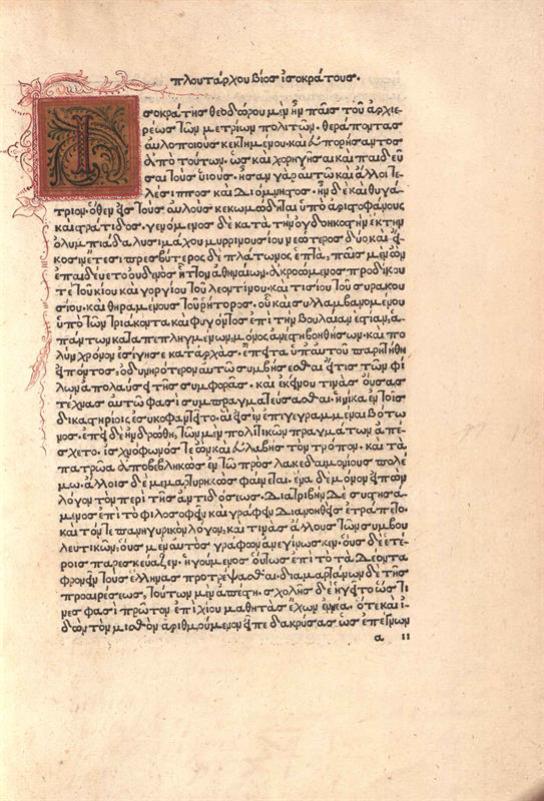 πλουτάρχου βίος ἰσοκράτους.
Ι
σοκράτης θεοδώρου μὲν ἦν παῖς τοῦ ἀρχιε
ρέως τῶν μετρίων πολιτῶν. θεράποντας
αὐλοποιοὺς κεκτημένου. καὶ εὐπορήσαντος
ἀπὸ τούτων. ὡς καὶ χορηγῆσαι καὶ παιδεῦ
σαι τοὺς υἱούς. ἦσαν γὰρ αὐτῷ καὶ ἄλλοι τε
λέσιππος καὶ διόμνηστος. ἦν δὲ καὶ θυγά
τριον. ὅθεν εἰς τοὺς αὐλοὺς κεκωμῴδηται ὑπὸ ἀριστοφάνους
καὶ στράτιδος. γενόμενος δὲ κατὰ τὴν ὀγδοηκοστὴν ἕκτην
ὀλυμπιάδα λυσιμάχου μυρρινουσίου νεώτερος δύο καὶ εἴ
κοσιν ἔτεσι πρεσβύτερος δὲ πλάτωνος ἑπτά, παῖς μὲν ὢν
ἐπαιδεύετο οὐδενὸς ἧττον ἀθηναίων. ἀκροώμενος προδίκου
τε τοῦ κίου καὶ γοργίου τοῦ λεοντίνου. καὶ τισίου τοῦ συρακου
σίου. καὶ θηραμένους τοῦ ῥήτορος. οὗ καὶ συλλαμβανομένου
ὑπὸ τῶν τριάκοντα καὶ φυγόντος ἐπὶ τὴν βουλαίαν ἑστίαν, ἁ
πάντων καταπεπληγμένων, μόνος ἀνέστη βοηθήσων. καὶ πο
λὺν χρόνον ἐσίγησε κατ' ἀρχάς. ἔπειτα ὑπ' αὐτοῦ παρῃτήθη
εἰπόντος, ὀδυνηρότερον αὐτῷ συμβήσεσθαι εἴ τις τῶν φί
λων ἀπολαύσει τῆς συμφορᾶς. καὶ ἐκείνου τινὰς οὔσας
τέχνας αὐτῷ φασὶ συμπραγματεύσασθαι. ἡνίκα ἐν τοῖς
δικαστηρίοις ἐσυκοφαντεῖτο. αἵ εἰσιν ἐπιγεγραμμέναι βότω
νος. ἐπεὶ δὲ ἠνδρώθη, τῶν μὲν πολιτικῶν πραγμάτων ἀπέ
σχετο. ἰσχνόφωνός τε ὢν καὶ εὐλαβὴς τὸν τρόπον. καὶ τὰ
πατρῷα ἀποβεβληκὼς ἐν τῷ πρὸς λακεδαιμονίους πολέ
μῳ. ἄλλοις δὲ μεμαρτυρηκὼς φαίνεται. ἕνα δὲ μόνον εἰπὼν
λόγον τὸν περὶ τῆς ἀντιδόσεως. διατριβὴν δὲ συστησά
μενος ἐπὶ τὸ φιλοσοφεῖν καὶ γράφειν ἃ διανοηθείη ἐτράπετο.
καὶ τόν τε πανηγυρικὸν λόγον, καί τινας ἄλλους τῶν συμβου
λευτικῶν, οὓς μὲν αὐτὸς γράφων ἀνεγίνωσκεν. οὓς δὲ ἑτέ
ροις παρεσκεύαζεν. ἡγούμενος οὕτως ἐπὶ τὸ τὰ δέοντα
φρονεῖν τοὺς ἕλληνας προτρέψασθαι. διαμαρτάνων δὲ τῆς
προαιρέσεως, τούτων μὲν ἀπέστη. σχολῆς δὲ ἡγεῖτο ὥς τι
νες φασὶ πρῶτον ἐπὶ χίου μαθητὰς ἔχων ἐννέα. ὅτε καὶ ἰ
δὼν τὸν μισθὸν ἀριθμούμενον εἶπε δακρύσας ὡς ἐπέγνων
α ΙΙ